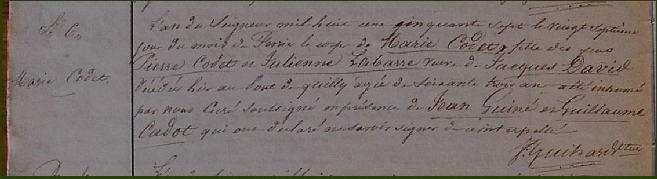 L'an du Seigneur mil huit cent cinquante sept le vingt septième
jour du mois de Février le corps de Marie Codet, fille des feus
Pierre Codet et Julienne Labarre veuve de Jacques David
Marie Codet
décédée hier au bout de quilly agée de soixante trois an a été inhumé
par nous Curé soussigné en présence de Jean Guiné et Guillaume
Cadot qui ont déclaré ne savoir signer de ce interpellé
J Guihard